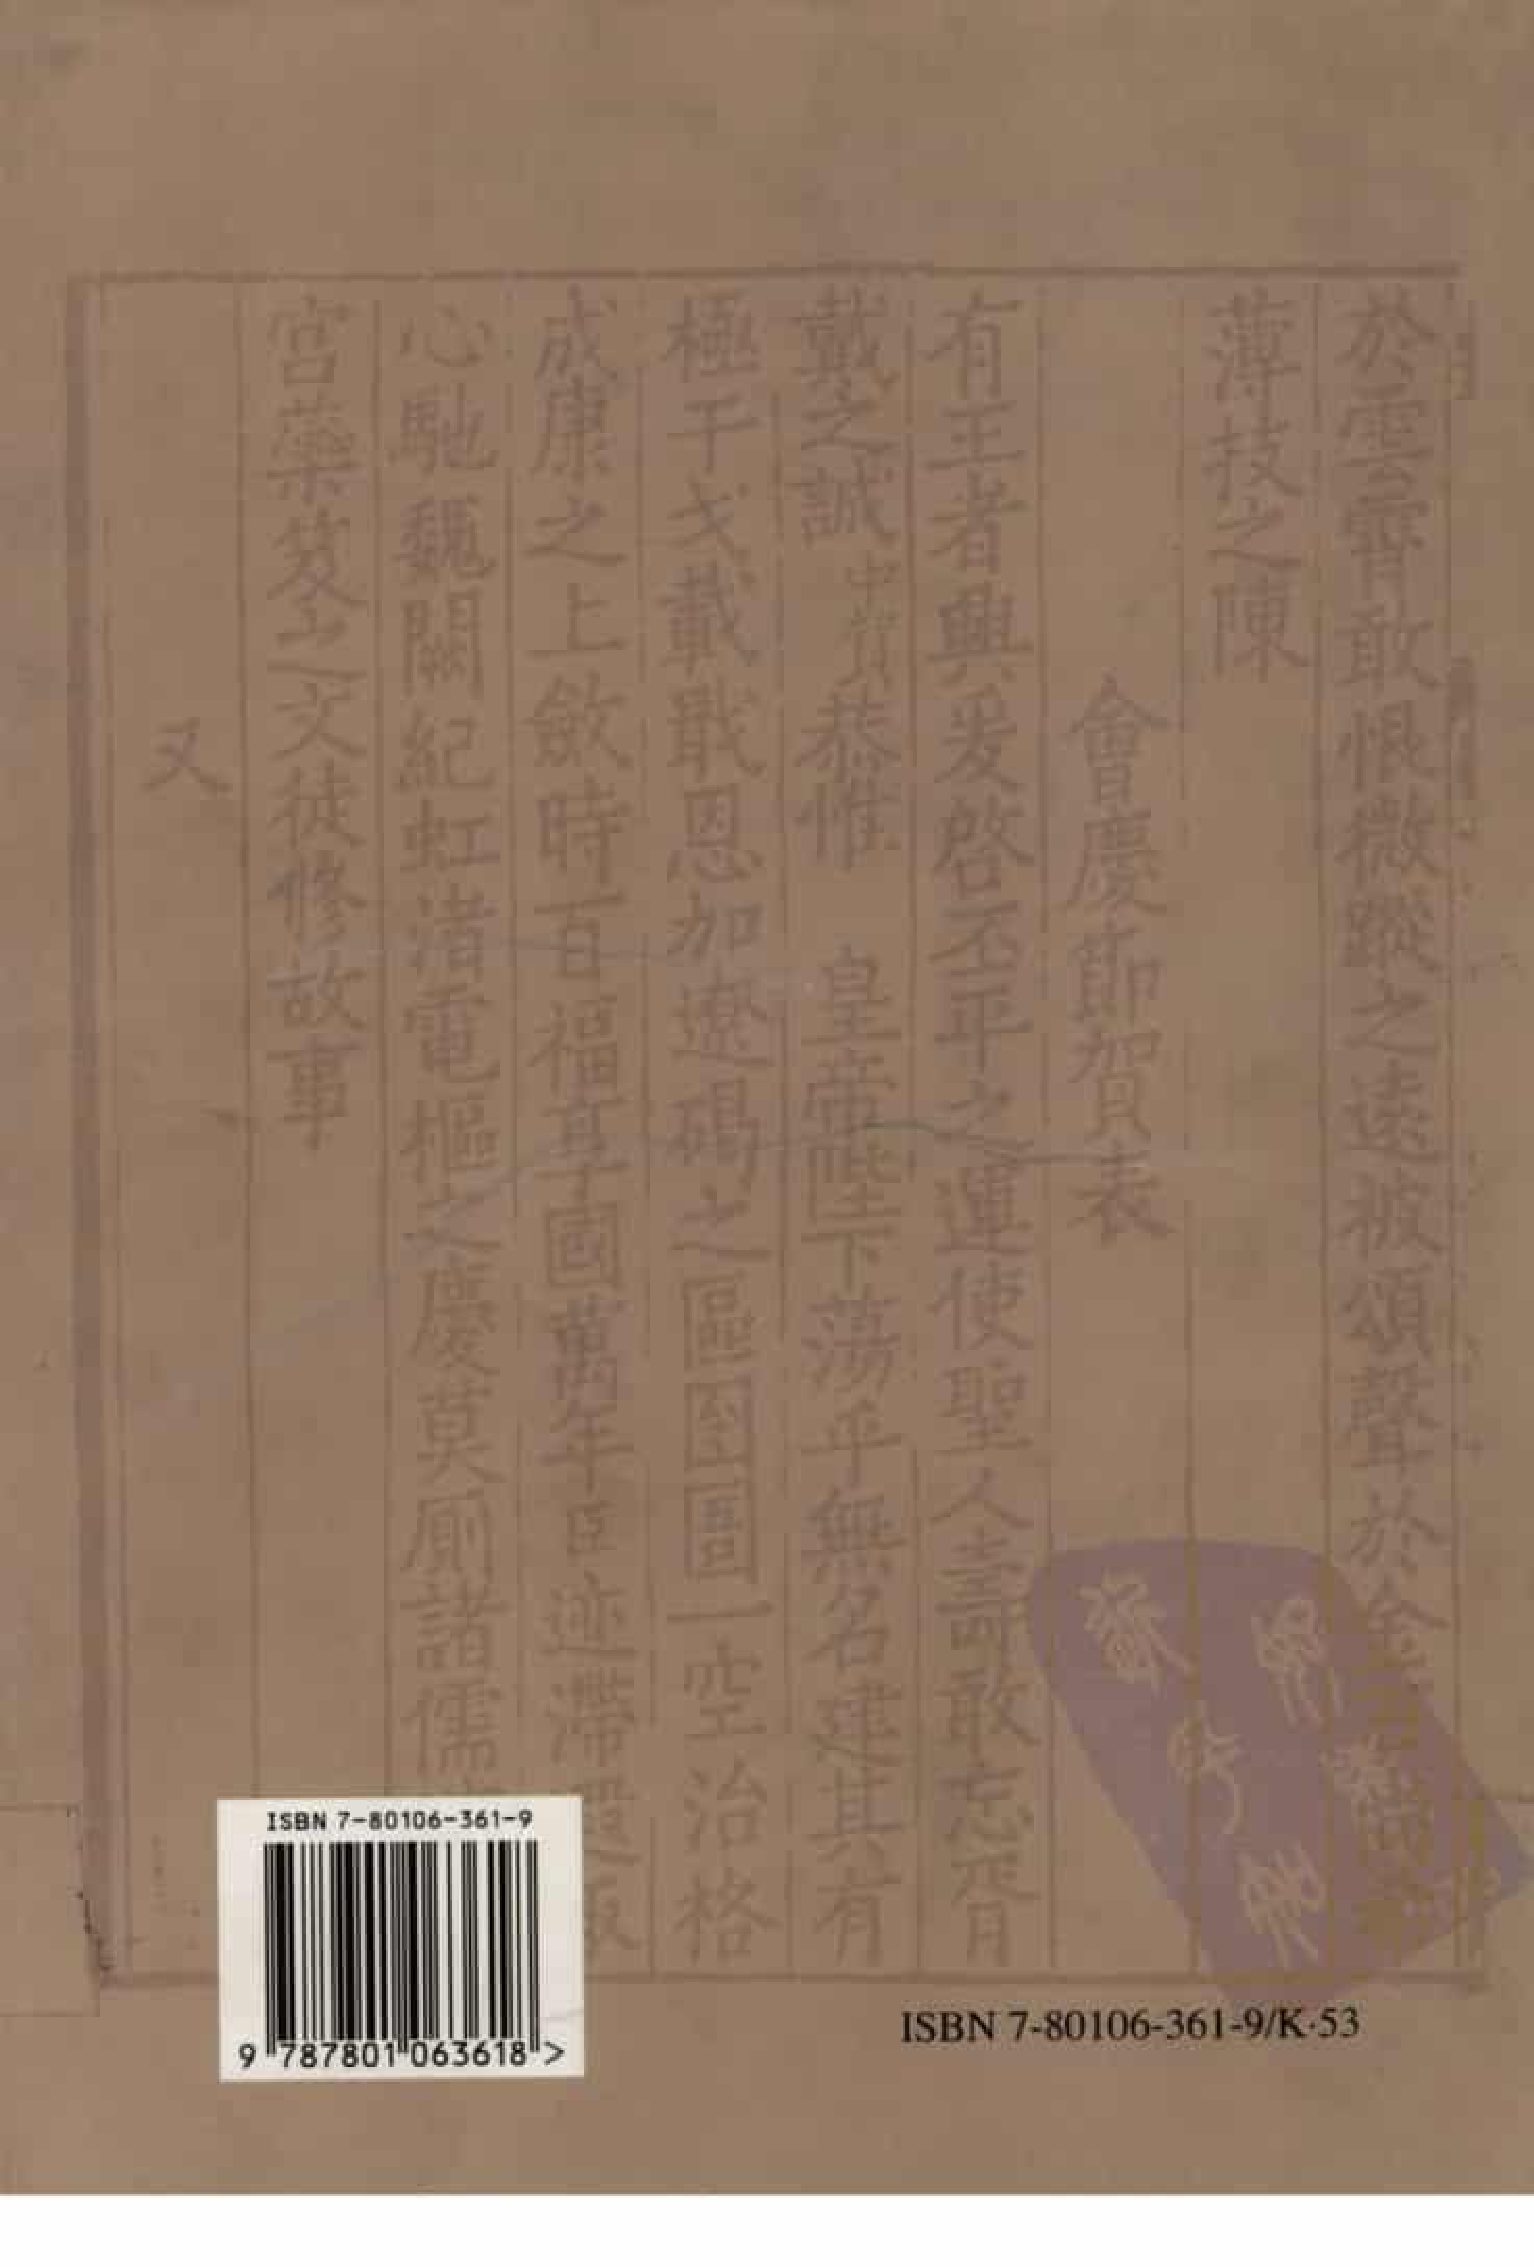 於雲霄敢恨微蹤之遠被頌聲於金
薄技之陳
會慶節賀表
有王者興爰啓丕平之運使聖人壽敢忘胥
戴之誠中賀恭惟 皇帝陛下蕩乎無名建其有
極干戈載戢恩加遼碣之區囹圄一空治格
成康之上斂時百福享國萬年臣迹滯
心馳魏闕紀虹渚電樞之慶莫厠諸儒
宮藥笈山之文徒修故事
又
ISBN 7-80106-361-9
9 787801 063618 >
ISBN 7-80106-361-9/K·53